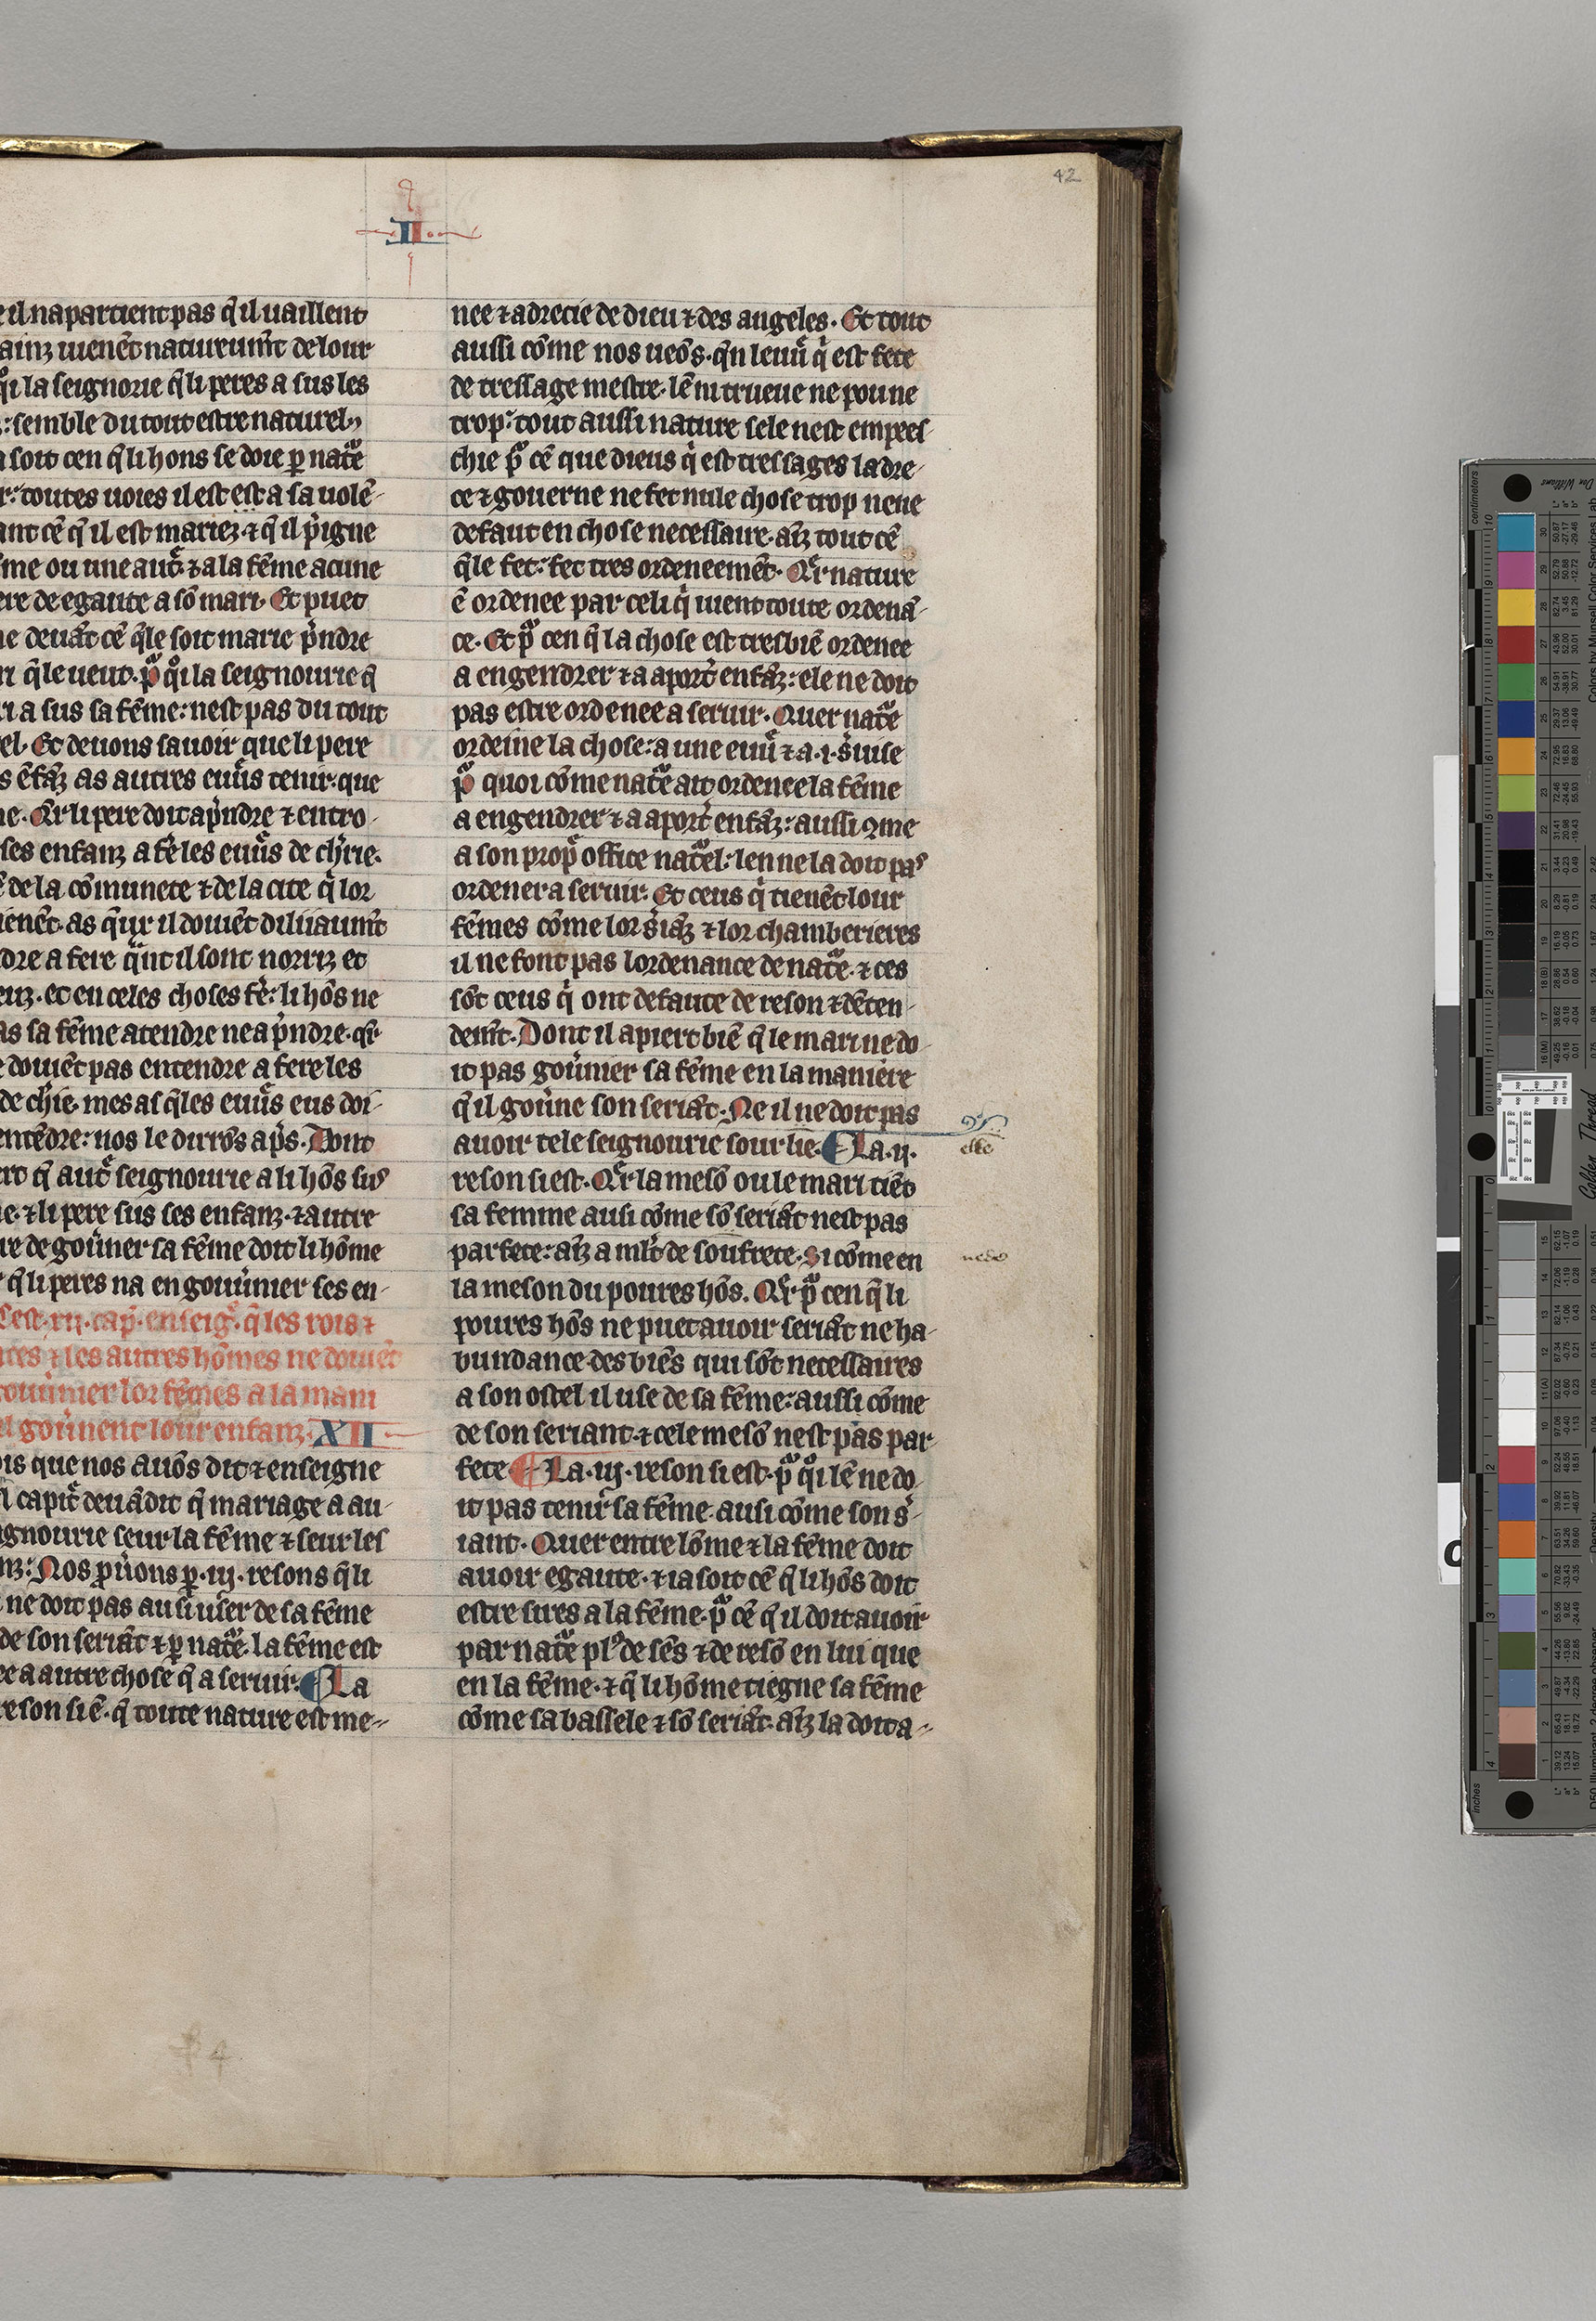 42
II
il napartient pas q̄ il uaillent
ainz uienēt natureumt̄ de lour
q̊i la seignorie q̄ li peres a sus les
semble du tout estre naturel
soit cen q̄ li hons se doie ꝑ nat̄e
toutes uoies il est est a sa uolē-
ant cē q̄ il est mariez ⁊ q̄ il p̄igne
me ou une aut̄ ⁊ a la fēme acune
ere de egaute a sō mari. Et puet
e deuāt cē q̄le soit marie p̄ndre
ri q̄le ueut. p̄ q̊i la seignourie q̄
a sus sa fēme: nest pas du tout
el. Et deuons sauoir que li pere
s ēfāz as autres euūs tenir. que
e. Qr̄ li pere doit ap̄ndre ⁊ entro-
ses enfanz a fēles euūs de ch̄rie.
de la cōmunete ⁊ de la cite q̄ lor
ienēt. as q̄ur il douiēt diliiaumt̄
dre a fere q̄nt il sont norriz et
eiz. et en celes choses fē: li hōs ne
as sa fēme atendre ne ap̄ndre. qr̄
douiēt pas entendre a fere les
de ch̄ie. mes as q̄les euūs eus doi-
entēdre: nos le dirōs ap̄s. Dont
q̄ aut̄ seignourie a li hōs sus
e. ⁊ li pere sus ses enfanz. ⁊ autre
re de goūner sa fēme doit li hōme
q̄ li peres na en gouūnier ses en-
est. xij. cap̄. enseig̊. q̄ les rois ⁊
ces ⁊ les autres hōmes ne douiēt
gouūnier lor fēmes a la mani
il goūnent lour enfanz. XII
is que nos auōs dit ⁊ enseigne
capit̄ deuādit q̄ mariage a au-
gnourie seur la fēme ⁊ seur les
nz: Nos p̄uons ꝑ .iij. resons q̄ li
ne doit pas ausi user de sa fēme
de son seriāt ⁊ ꝑ nat̄e. la fēme est
ee a autre chose q̄ a seruir. ¶ La
reson si ē. q̄ toute nature est me-
nee ⁊ adrecie de dieu ⁊ des angeles. Et tout
aussi cōme nos ueōs. q̄n leuū q̄ est fete
de tressage mestre. lē ni trueue ne pou ne
trop: tout aussi nature sele nest empees-
chie p̄ cē que dieus q̄ est tressages la dre-
ce ⁊ gouerne ne fet nule chose trop neue
defaut en chose necessaire. aīz tout cē
q̄le fet: fet tres ordeneemēt. Qr̄ nature
ē ordenee par celi q̄ uient toute ordenā-
ce. Et p̄ cen q̄ la chose est tresbiē ordenee
a engendrer ⁊ a aport̄ enfāz: ele ne doit
pas estre ordenee a seruir. Quer nat̄e
ordeine la chose: a une euū ⁊ a .i. s̄uise
p̄ quoi cōme nat̄e ait ordenee la fēme
a engendrer ⁊ a aport̄ enfāz: aussi 9me
a son prop̄ office nat̄el: len ne la doit pas
ordener a seruir. Et ceus q̄ tienēt lour
fēmes cōme lor s̄iāz ⁊ lor chamberieres
il ne font pas lordenance de nat̄e. ⁊ ces
sōt ceus q̄ ont defaute de reson ⁊ dēten-
demt̄. Dont il apiert biē q̄ le mari ne do-
it pas goūnier sa fēme en la maniere
q̄ il goūne son seriāt. Ne il ne doit pas
auoir tele seignourie sour lie. ¶ La .ij.
reson si est. Qr̄ la mesō ou le mari tiēt
sa femme ausi cōme sō seriāt nest pas
parfete: aīz a ml̄t de soufrete. Si cōme en
la meson du poures hōs. Qr̄ p̄ cen q̄ li
poures hōs ne puet auoir seriāt ne ha-
bundance des biēs qui sōt necessaires
a son ostel il use de sa fēme: aussi cōme
de son seriant. ⁊ cele mesō nest pas par-
fete ¶ La .iij. reson si est. p̄ q̊i lē ne do-
it pas tenir sa fēme ausi cōme son s̄-
iant. Quer entre lōme ⁊ la fēme doit
auoir egaute. ⁊ ia soit cē q̄ li hōs doit
estre sires a la fēme. p̄ cē q̄ il doit auoir
par nat̄e pl9 de sēs ⁊ de resō en lui que
en la fēme. ⁊ q̄ li hōme tiegne sa fēme
cōme sa bassele ⁊ sō seriāt. aīz la doit a-